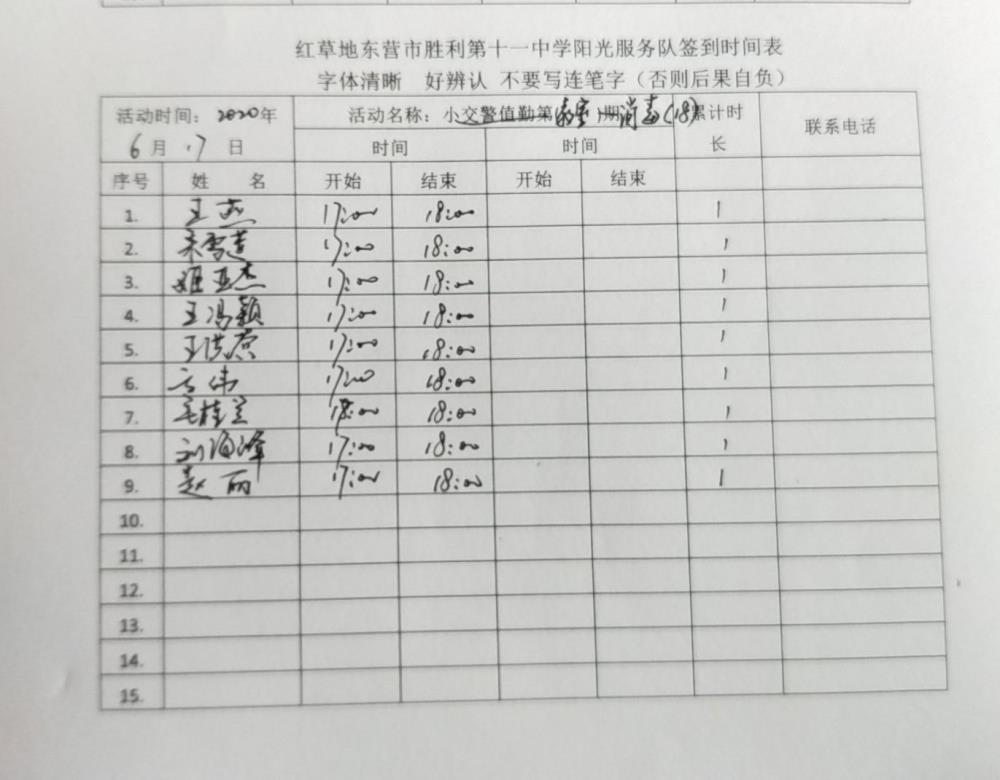 红草地东营市胜利第十一中学阳光服务队签到时间表
字体清晰 好辨认 不要写连笔字（否则后果自负）
活动时间： 2020年 活动名称：小交警值勤第 教室 期 消毒(18) 累计时长 联系电话
6月17日 时间 时间
序号 姓 名 开始 结束 开始 结束
1. 王燕 17:00 18:00 1
2. 朱雪莲 17:00 18:00 1
3. 姬亚杰 17:00 18:00 1
4. 王冯颖 17:00 18:00 1
5. 王洪 17:00 18:00 1
6. 方伟 17:00 18:00 1
7. 毛桂兰 18:00 18:00 1
8. 刘海峰 17:00 18:00 1
9. 赵丽 17:00 18:00 1
10.
11.
12.
13.
14.
15.